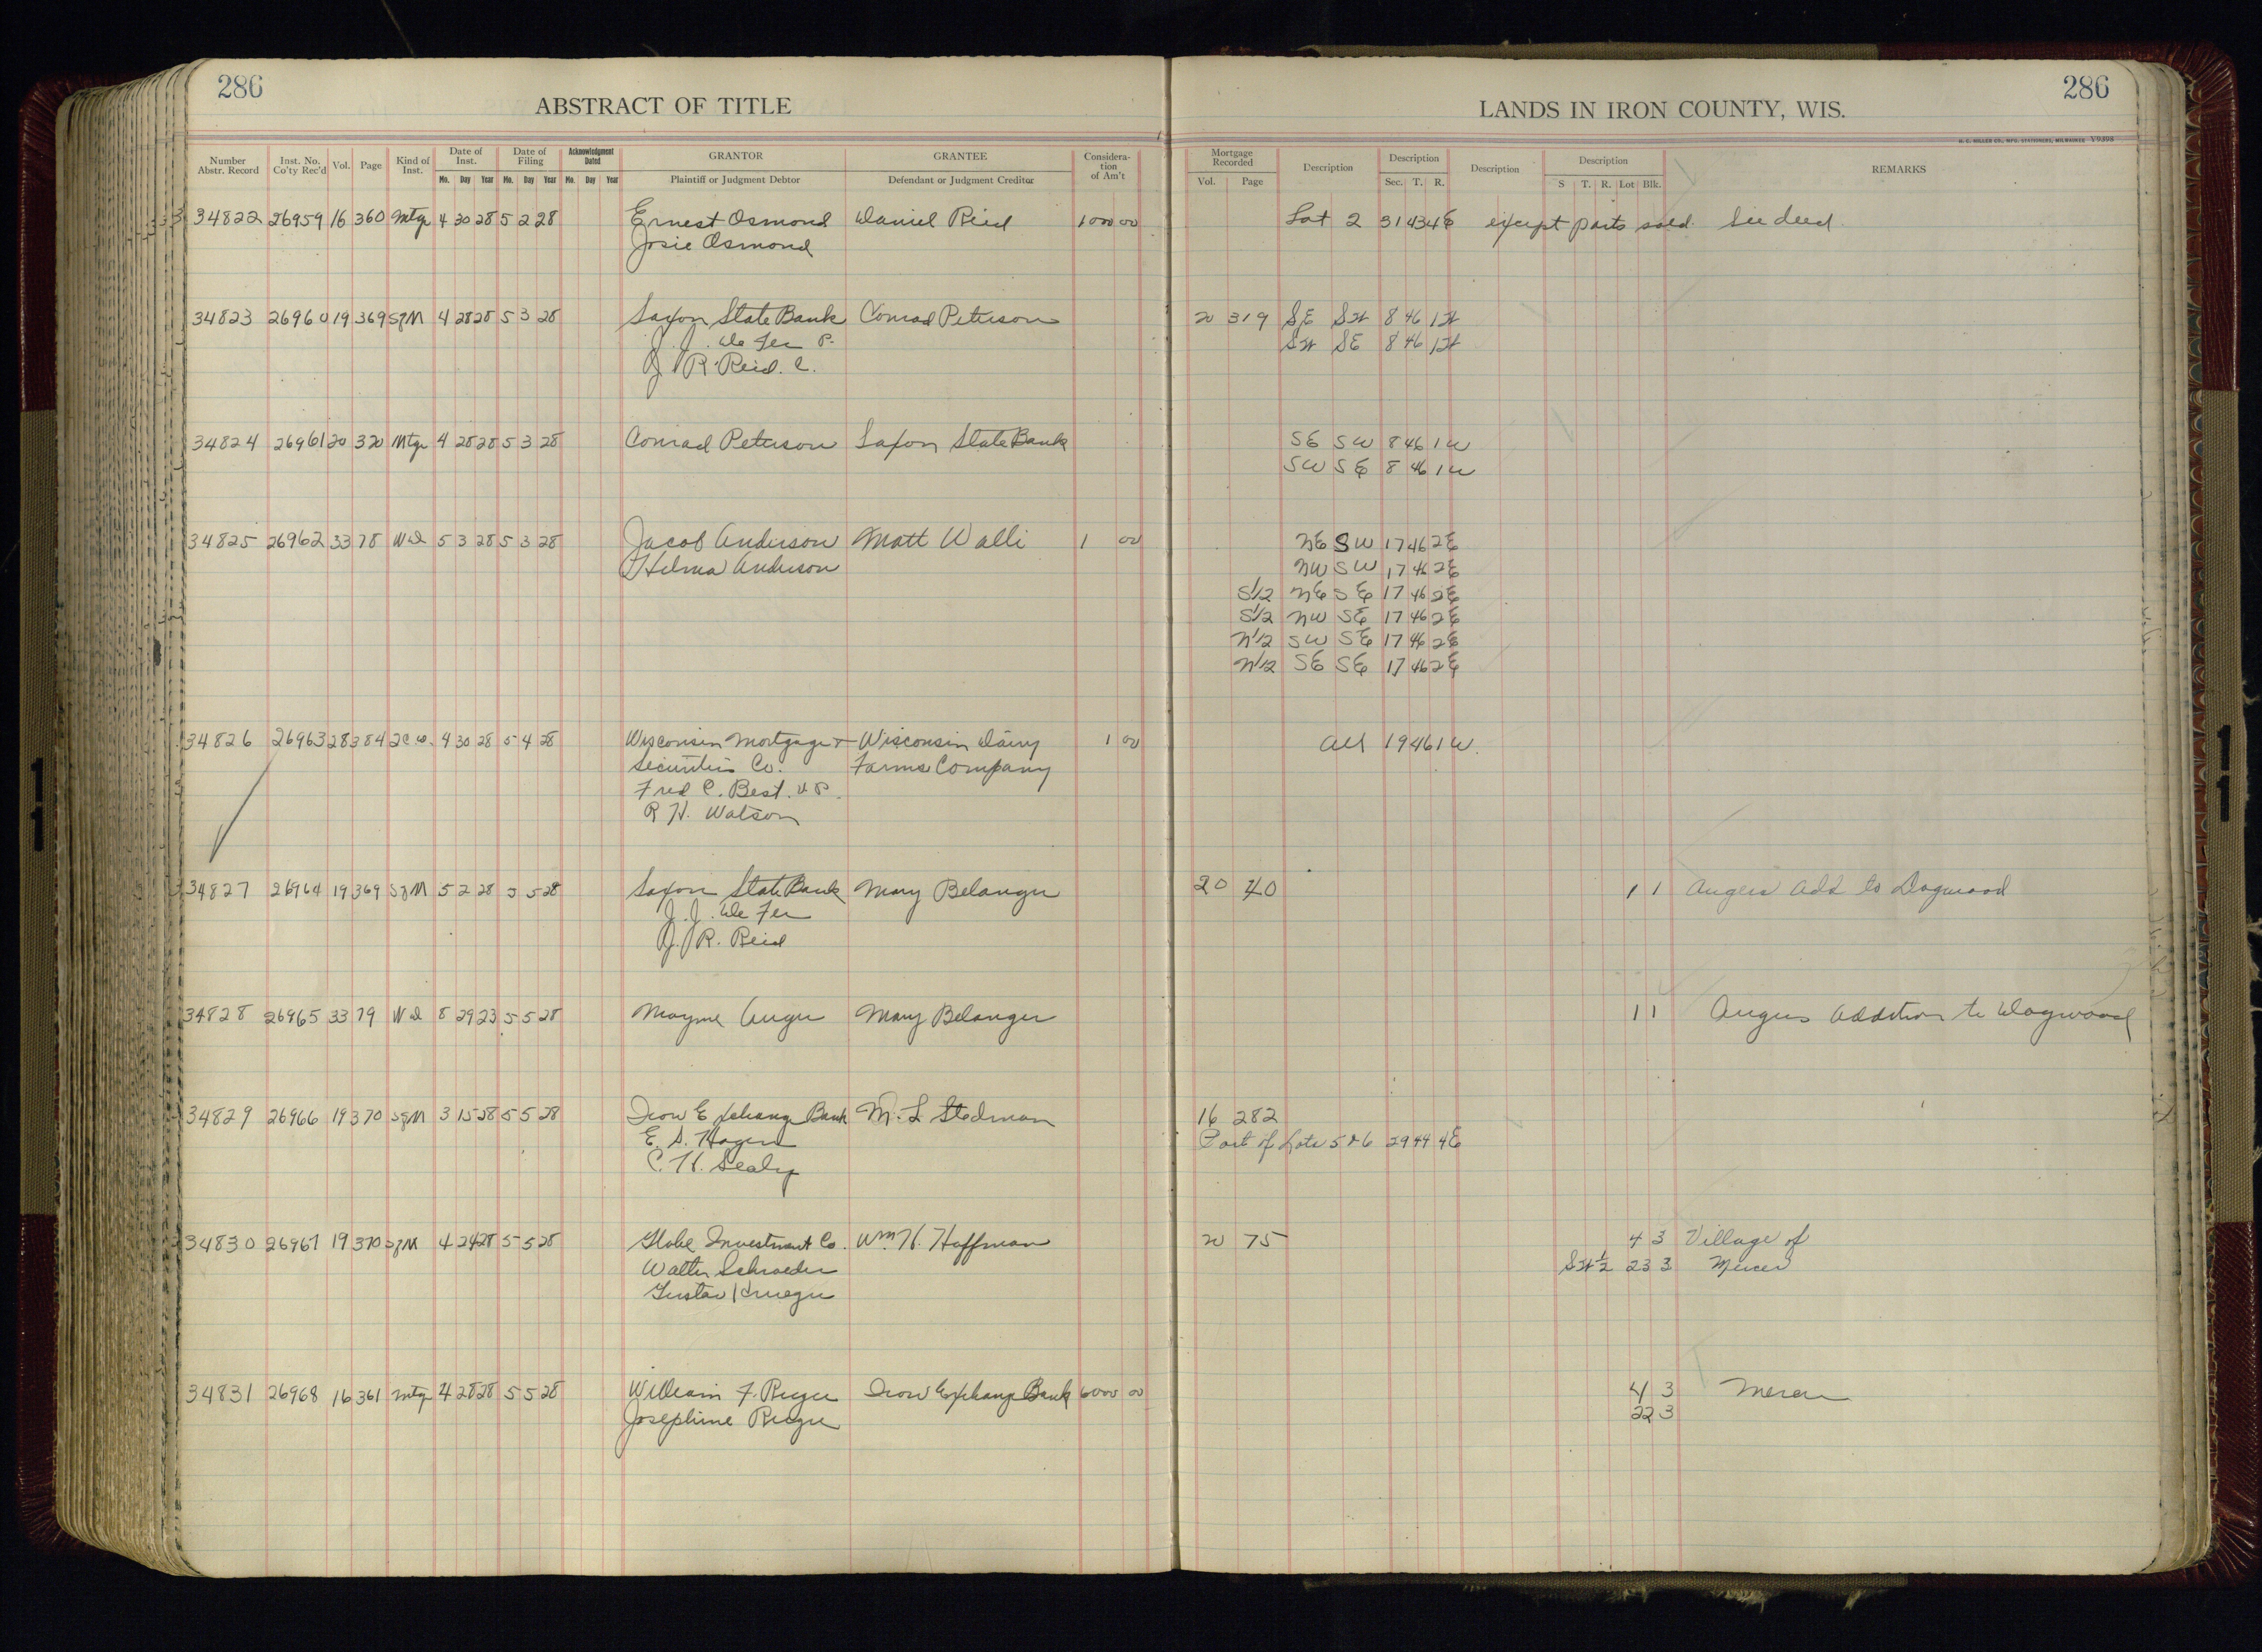 286
ABSTRACT OF TITLE
LANDS IN IRON COUNTY, WIS.
286
H. C. MILLER CO., MFG. STATIONERS, MILWAUKEE V9398
Number Abstr. Record Inst. No. Co'ty Rec'd Vol. Page Kind of Inst. Date of Inst. Mo. Day Year Date of Filing Mo. Day Year Acknowledgment Dated Mo. Day Year GRANTOR Plaintiff or Judgment Debtor GRANTEE Defendant or Judgment Creditor Consideration of Am't Mortgage Recorded Vol. Page Description Description Sec. T. R. Description Description S T. R. Lot Blk. REMARKS
34822 26959 16 360 Mtge 4 30 28 5 2 28 Ernest Osmond Daniel Reid 1000 00 Lot 2 31 43 4 E except parts sold. See deed.
Josie Osmond
34823 26960 19 369 SgM 4 28 28 5 3 28 Saxon State Bank Conrad Peterson 20 319 SE SW 8 46 1 W
J. J. De Fer P. SW SE 8 46 1 W
J. R. Reid. C.
34824 26961 20 320 Mtge 4 28 28 5 3 28 Conrad Peterson Saxon State Bank SE SW 8 46 1 W
SW SE 8 46 1 W
34825 26962 33 78 Wd 5 3 28 5 3 28 Jacob Anderson Matt Walli 1 00 NE SW 17 46 2 E
Hilma Anderson NW SW 17 46 2 E
S1/2 NE SE 17 46 2 E
S1/2 NW SE 17 46 2 E
N1/2 SW SE 17 46 2 E
N1/2 SE SE 17 46 2 E
34826 26963 28 384 2C Co. 4 30 28 5 4 28 Wisconsin Mortgage & Wisconsin Dairy 1 00 All 19 46 1 W.
Securities Co. Farms Company
Fred C. Best. V.P.
R H. Watson
34827 26964 19 369 SgM 5 2 28 5 5 28 Saxon State Bank Mary Belanger 20 40 1 1 Augers Add to Dogwood
J. J. De Fer
J. R. Reid
34828 26965 33 79 Wd 8 29 23 5 5 28 Mayme Auger Mary Belanger 1 1 Augers Addition to Dogwood
34829 26966 19 370 SgM 3 15 28 5 5 28 Iron Exchange Bank M. L. Stedman 16 282
E. S. Hagen Part of Lots 5 & 6 29 44 4 E
C. H. Sealy
34830 26967 19 370 SgM 4 24 28 5 5 28 Globe Investment Co. Wm. H. Hoffman 20 75 4 3 Village of
Walter Schroeder SW 1/2 23 3 Mercer
Gustav Krueger
34831 26968 16 361 Mtge 4 28 28 5 5 28 William F. Rieger Iron Exchange Bank 6000 00 4 3 Mercer
Josephine Rieger 22 3